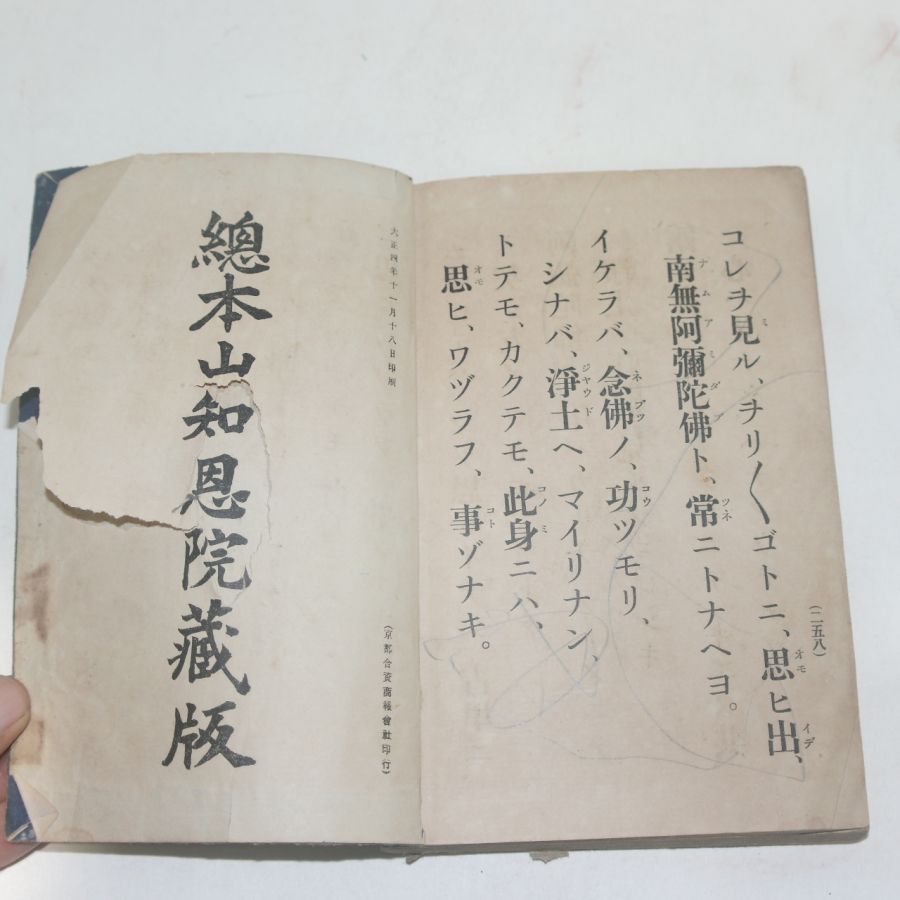 (二五八)
コレヲ見ル、ヲリ〱ゴトニ、思ヒ出、
南無阿彌陀佛ト、常ニトナヘヨ。
イケラバ、念佛ノ、功ツモリ、
シナバ、淨土ヘ、マイリナン、
トテモ、カクテモ、此身ニハ、
思ヒ、ワヅラフ、事ゾナキ。
大正四年十一月十八日印刷
(京都合資商報會社印行)
總本山知恩院藏版